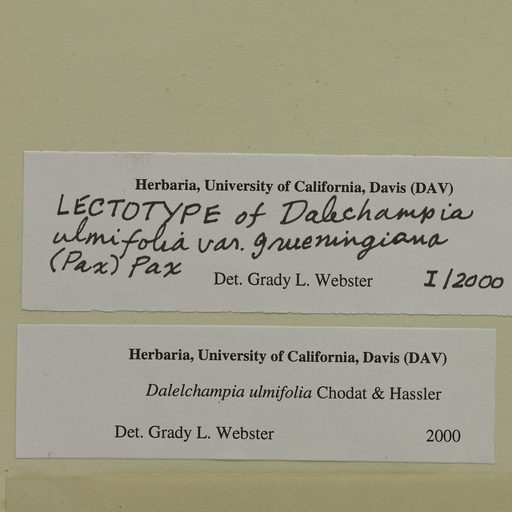 Herbaria, University of California, Davis (DAV)
LECTOTYPE of Dalechampia
ulmifolia var. grueningiana
(Pax) Pax
Det. Grady L. Webster I/2000
Herbaria, University of California, Davis (DAV)
Dalelchampia ulmifolia Chodat & Hassler
Det. Grady L. Webster 2000